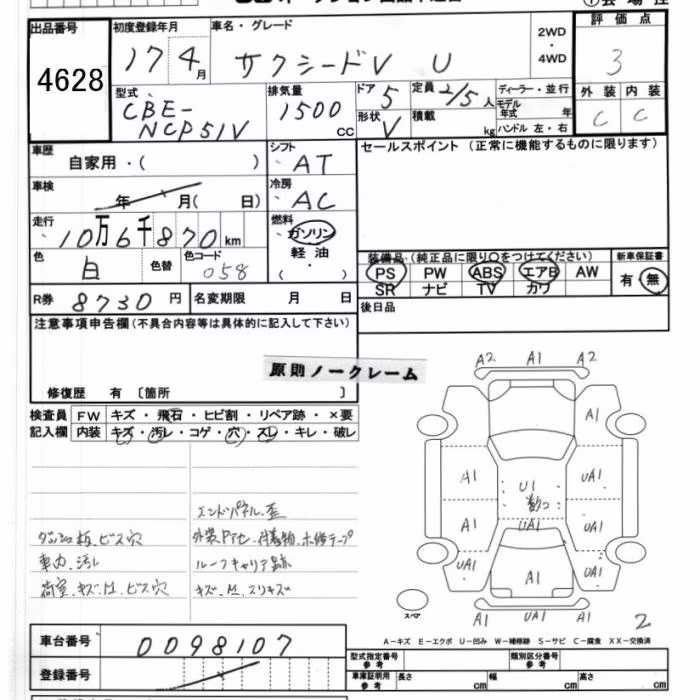 出品番号 初度登録年月 車名・グレード 2WD・4WD 評価点
4628 17 4月 サクシードV U 3
型式 CBE-NCP51V 排気量 1500 CC ドア 5 定員 2/5人 ディーラー・並行 外装 内装
形状 V 積載 kg モデル年式 年 C C
ハンドル 左・右
車歴 自家用・( ) シフト AT セールスポイント (正常に機能するものに限ります)
車検 年 月( 日) 冷房 AC
走行 10万6千870km 燃料 ガソリン
軽油
装備品 (純正品に限り○をつけてください) 新車保証書
色 白 色替 色コード 058 PS PW ABS エアB AW 有・無
SR ナビ TV カワ
R券 8730円 名変期限 月 日 後日品
注意事項申告欄(不具合内容等は具体的に記入して下さい)
原則ノークレーム
修復歴 有 〔箇所 〕
検査員 FW キズ・飛石・ヒビ割・リペア跡・×要
記入欄 内装 キズ・汚レ・コゲ・穴・スレ・キレ・破レ
エンドパネル.歪
ダッシュ板.ビス穴 外装Pアセ.付着物.木修テープ
車内.汚レ ルーフキャリア跡
荷室.キズ.凹.ビス穴 キズ.凹.スリキズ
A2 A1 A2
A1
A1 U1 UA1
数コ
A1 UA1 UA1
UA1 A1 UA1
スペア
A1 UA1 A1
2
A-キズ E-エクボ U-凹み W-補修跡 S-サビ C-腐食 XX-交換済
車台番号 0098107
型式指定番号 参考 類別区分番号 参考
登録番号
車庫証明用 参考 長さ cm 幅 cm 高さ cm